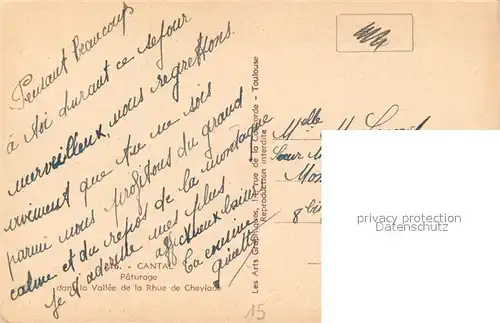 Pensant beaucoup
à toi durant ce séjour
merveilleux, nous regrettons
vraiment que tu ne sois
parmi nous profitons du grand
calme et du repos de la montagne
Je t'adresse mes plus
affectueux baisers
Ta cousine
Ginette
- CANTAL
Pâturage
dans la Vallée de la Rhue de Cheylade
Les Arts Graphiques, de la Concorde - Toulouse
Reproduction interdite
Melle
Sœur
8
15
privacy protection